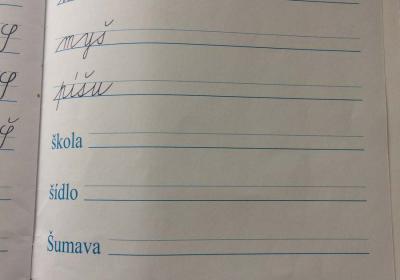 myš
píšu
škola
šídlo
Šumava